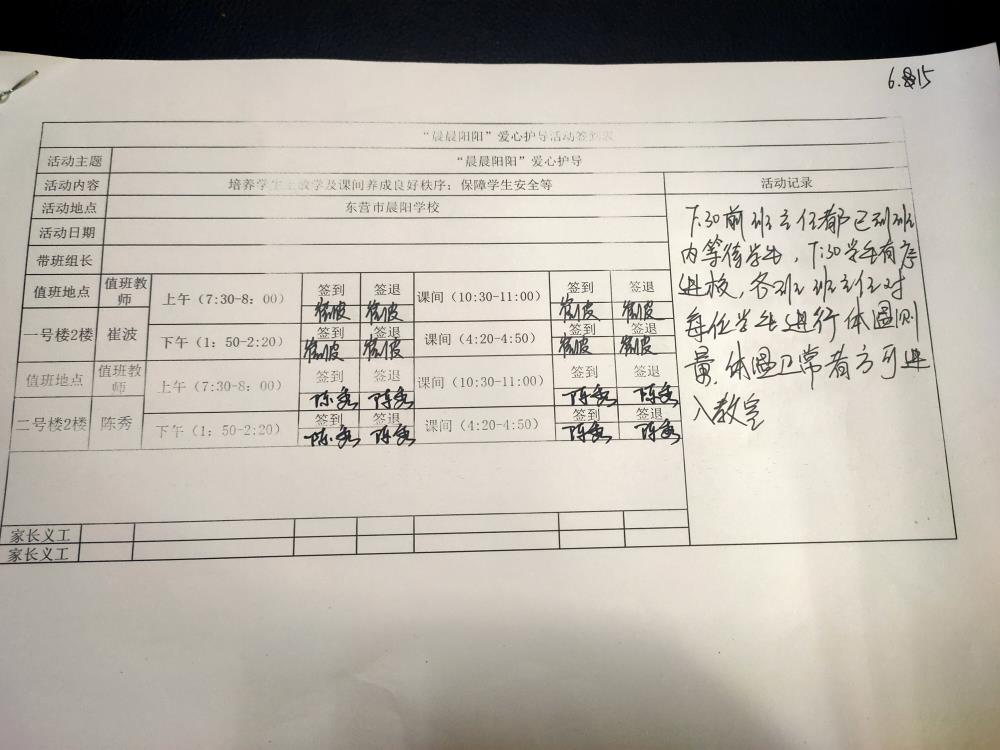 6.15
“晨晨阳阳”爱心护导活动签到表
活动主题 “晨晨阳阳”爱心护导
活动内容 培养学生上放学及课间养成良好秩序；保障学生安全等 活动记录
活动地点 东营市晨阳学校
活动日期
带班组长
值班地点 值班教师 上午（7:30-8：00） 签到 签退 课间（10:30-11:00） 签到 签退
崔波 崔波 崔波 崔波
一号楼2楼 崔波 下午（1：50-2:20） 签到 签退 课间（4:20-4:50） 签到 签退
崔波 崔波 崔波 崔波
值班地点 值班教师 上午（7:30-8：00） 签到 签退 课间（10:30-11:00） 签到 签退
陈秀 陈秀 陈秀 陈秀
二号楼2楼 陈秀 下午（1：50-2:20） 签到 签退 课间（4:20-4:50） 签到 签退
陈秀 陈秀 陈秀 陈秀
7:30前班主任都已到班
内等待学生，7:30学生有序
进校，各班班主任对
每位学生进行体温测
量，体温正常者方可进
入教室
家长义工
家长义工